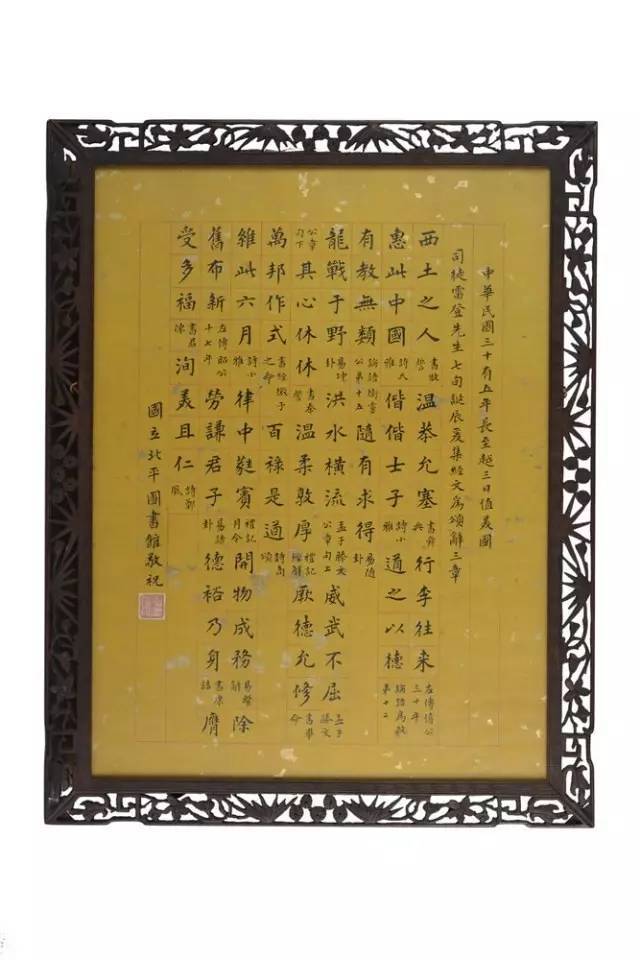 中華民國三十有五年長至越三日值美國
司徒雷登先生七旬誕辰爰集經文爲頌辭三章
西土之人書牧誓溫恭允塞書舜典行李往來左傳僖公三十年
惠此中國詩大雅偕偕士子詩小雅道之以德論語爲政
有教無類論語衛靈公第十五隨有求得易隨卦
龍戰于野易坤卦洪水橫流孟子滕文公章句上威武不屈孟子滕文
公章句下其心休休書秦誓溫柔敦厚禮記經解厥德允修書畢命
萬邦作式書微子之命百祿是遒詩商頌
維此六月詩小雅律中蕤賓禮記月令開物成務易繫辭除
舊布新左傳昭公十七年勞謙君子易謙卦德裕乃身書康誥膺
受多福書君陳洵美且仁詩鄭風
國立北平圖書館敬祝